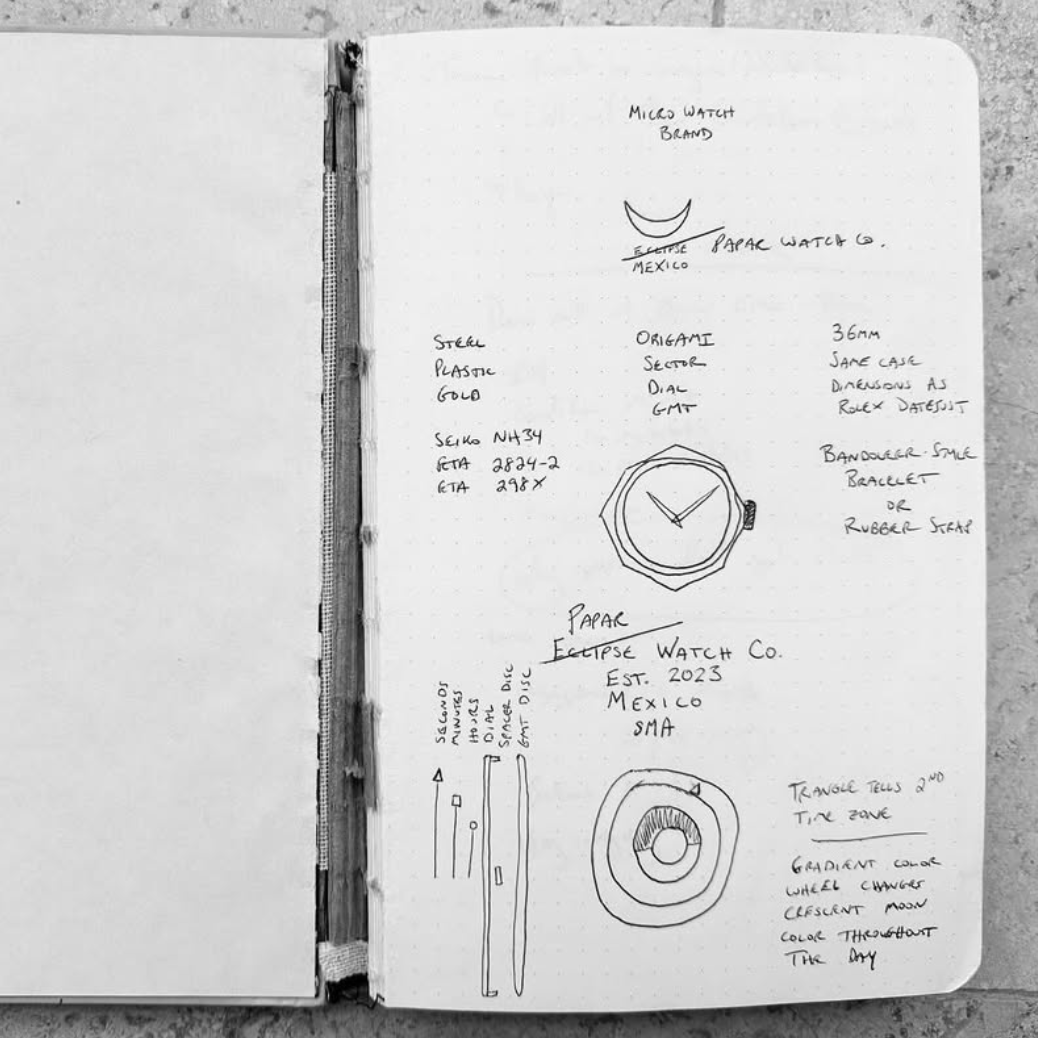 MICRO WATCH
BRAND
ECLIPSE PAPAR WATCH CO.
MEXICO
STEEL
PLASTIC
GOLD
SEIKO NH34
ETA 2824-2
ETA 298X
ORIGAMI
SECTOR
DIAL
GMT
36MM
SAME CASE
DIMENSIONS AS
ROLEX DATEJUST
BANDOLEER-STYLE
BRACELET
OR
RUBBER STRAP
PAPAR
ECLIPSE WATCH CO.
EST. 2023
MEXICO
SMA
SECONDS
MINUTES
HOURS
DIAL
SPACER DISC
GMT DISC
TRIANGLE TELLS 2ND
TIME ZONE
GRADIENT COLOR
WHEEL CHANGES
CRESCENT MOON
COLOR THROUGHOUT
THE DAY